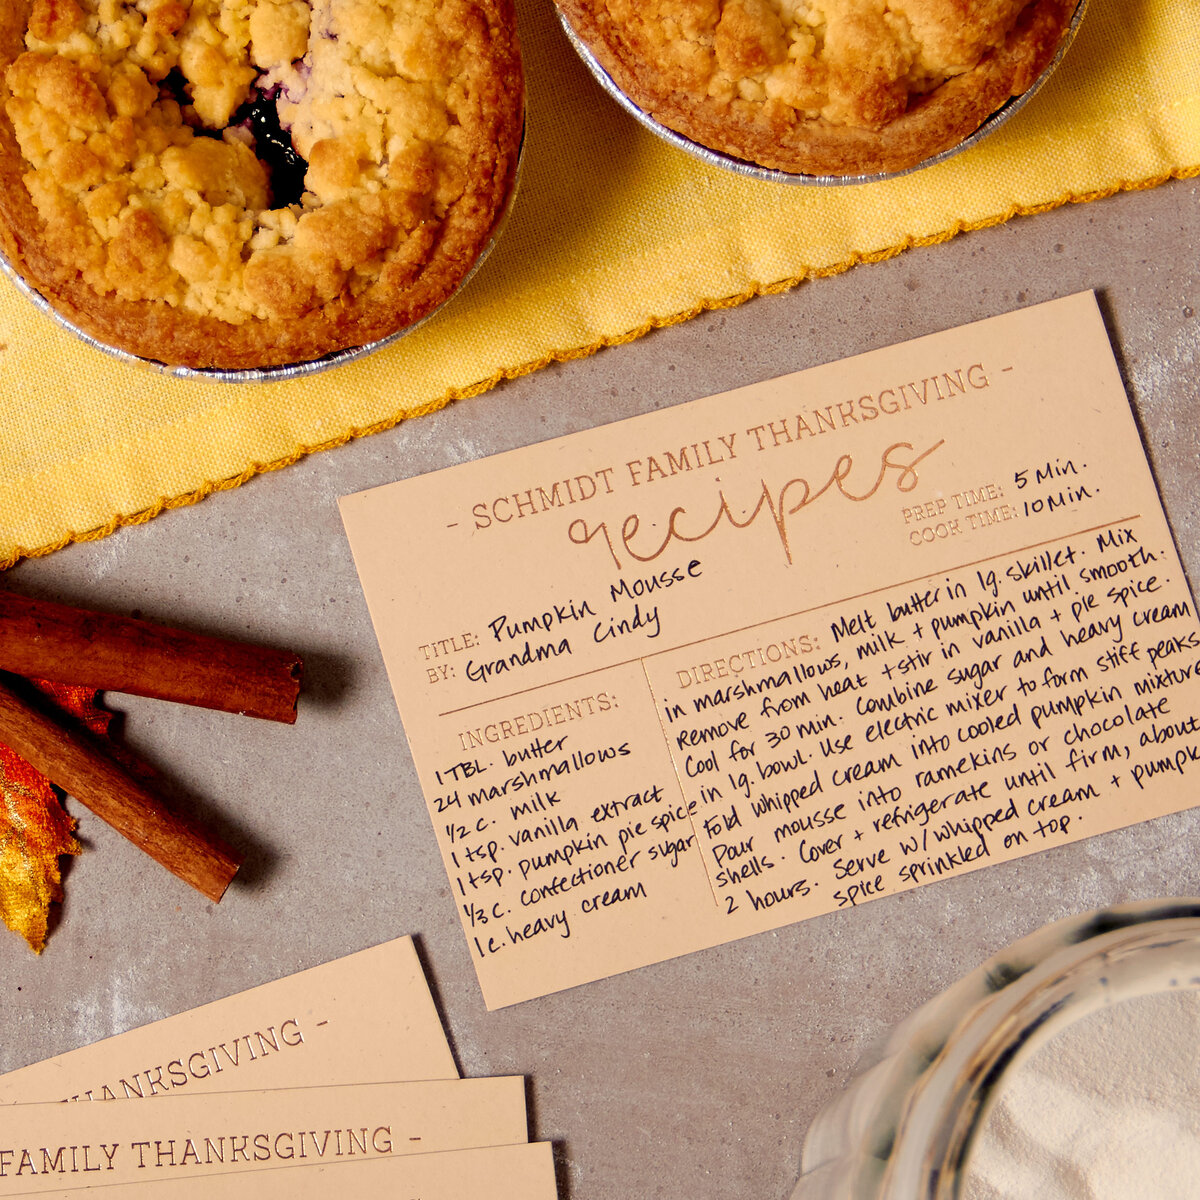 - SCHMIDT FAMILY THANKSGIVING -
recipes
PREP TIME: 5 Min.
COOK TIME: 10 Min.
TITLE: Pumpkin Mousse
BY: Grandma Cindy
INGREDIENTS:
1 TBL. butter
24 marshmallows
1/2 c. milk
1 tsp. vanilla extract
1 tsp. pumpkin pie spice
1/3 c. confectioner sugar
1 c. heavy cream
DIRECTIONS: Melt butter in lg. skillet. Mix
in marshmallows, milk + pumpkin until smooth.
Remove from heat + stir in vanilla + pie spice.
Cool for 30 min. Combine sugar and heavy cream
in lg. bowl. Use electric mixer to form stiff peaks
Fold whipped cream into cooled pumpkin mixture
Pour mousse into ramekins or chocolate
shells. Cover + refrigerate until firm, about
2 hours. Serve w/ whipped cream + pumpk
spice sprinkled on top.
THANKSGIVING -
FAMILY THANKSGIVING -